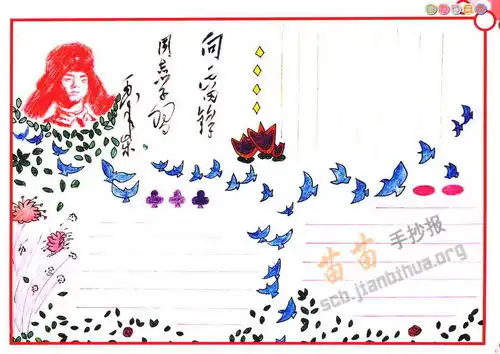 向雷锋
同志学习
毛泽东
苗苗手抄报
scb.jianbihua.org